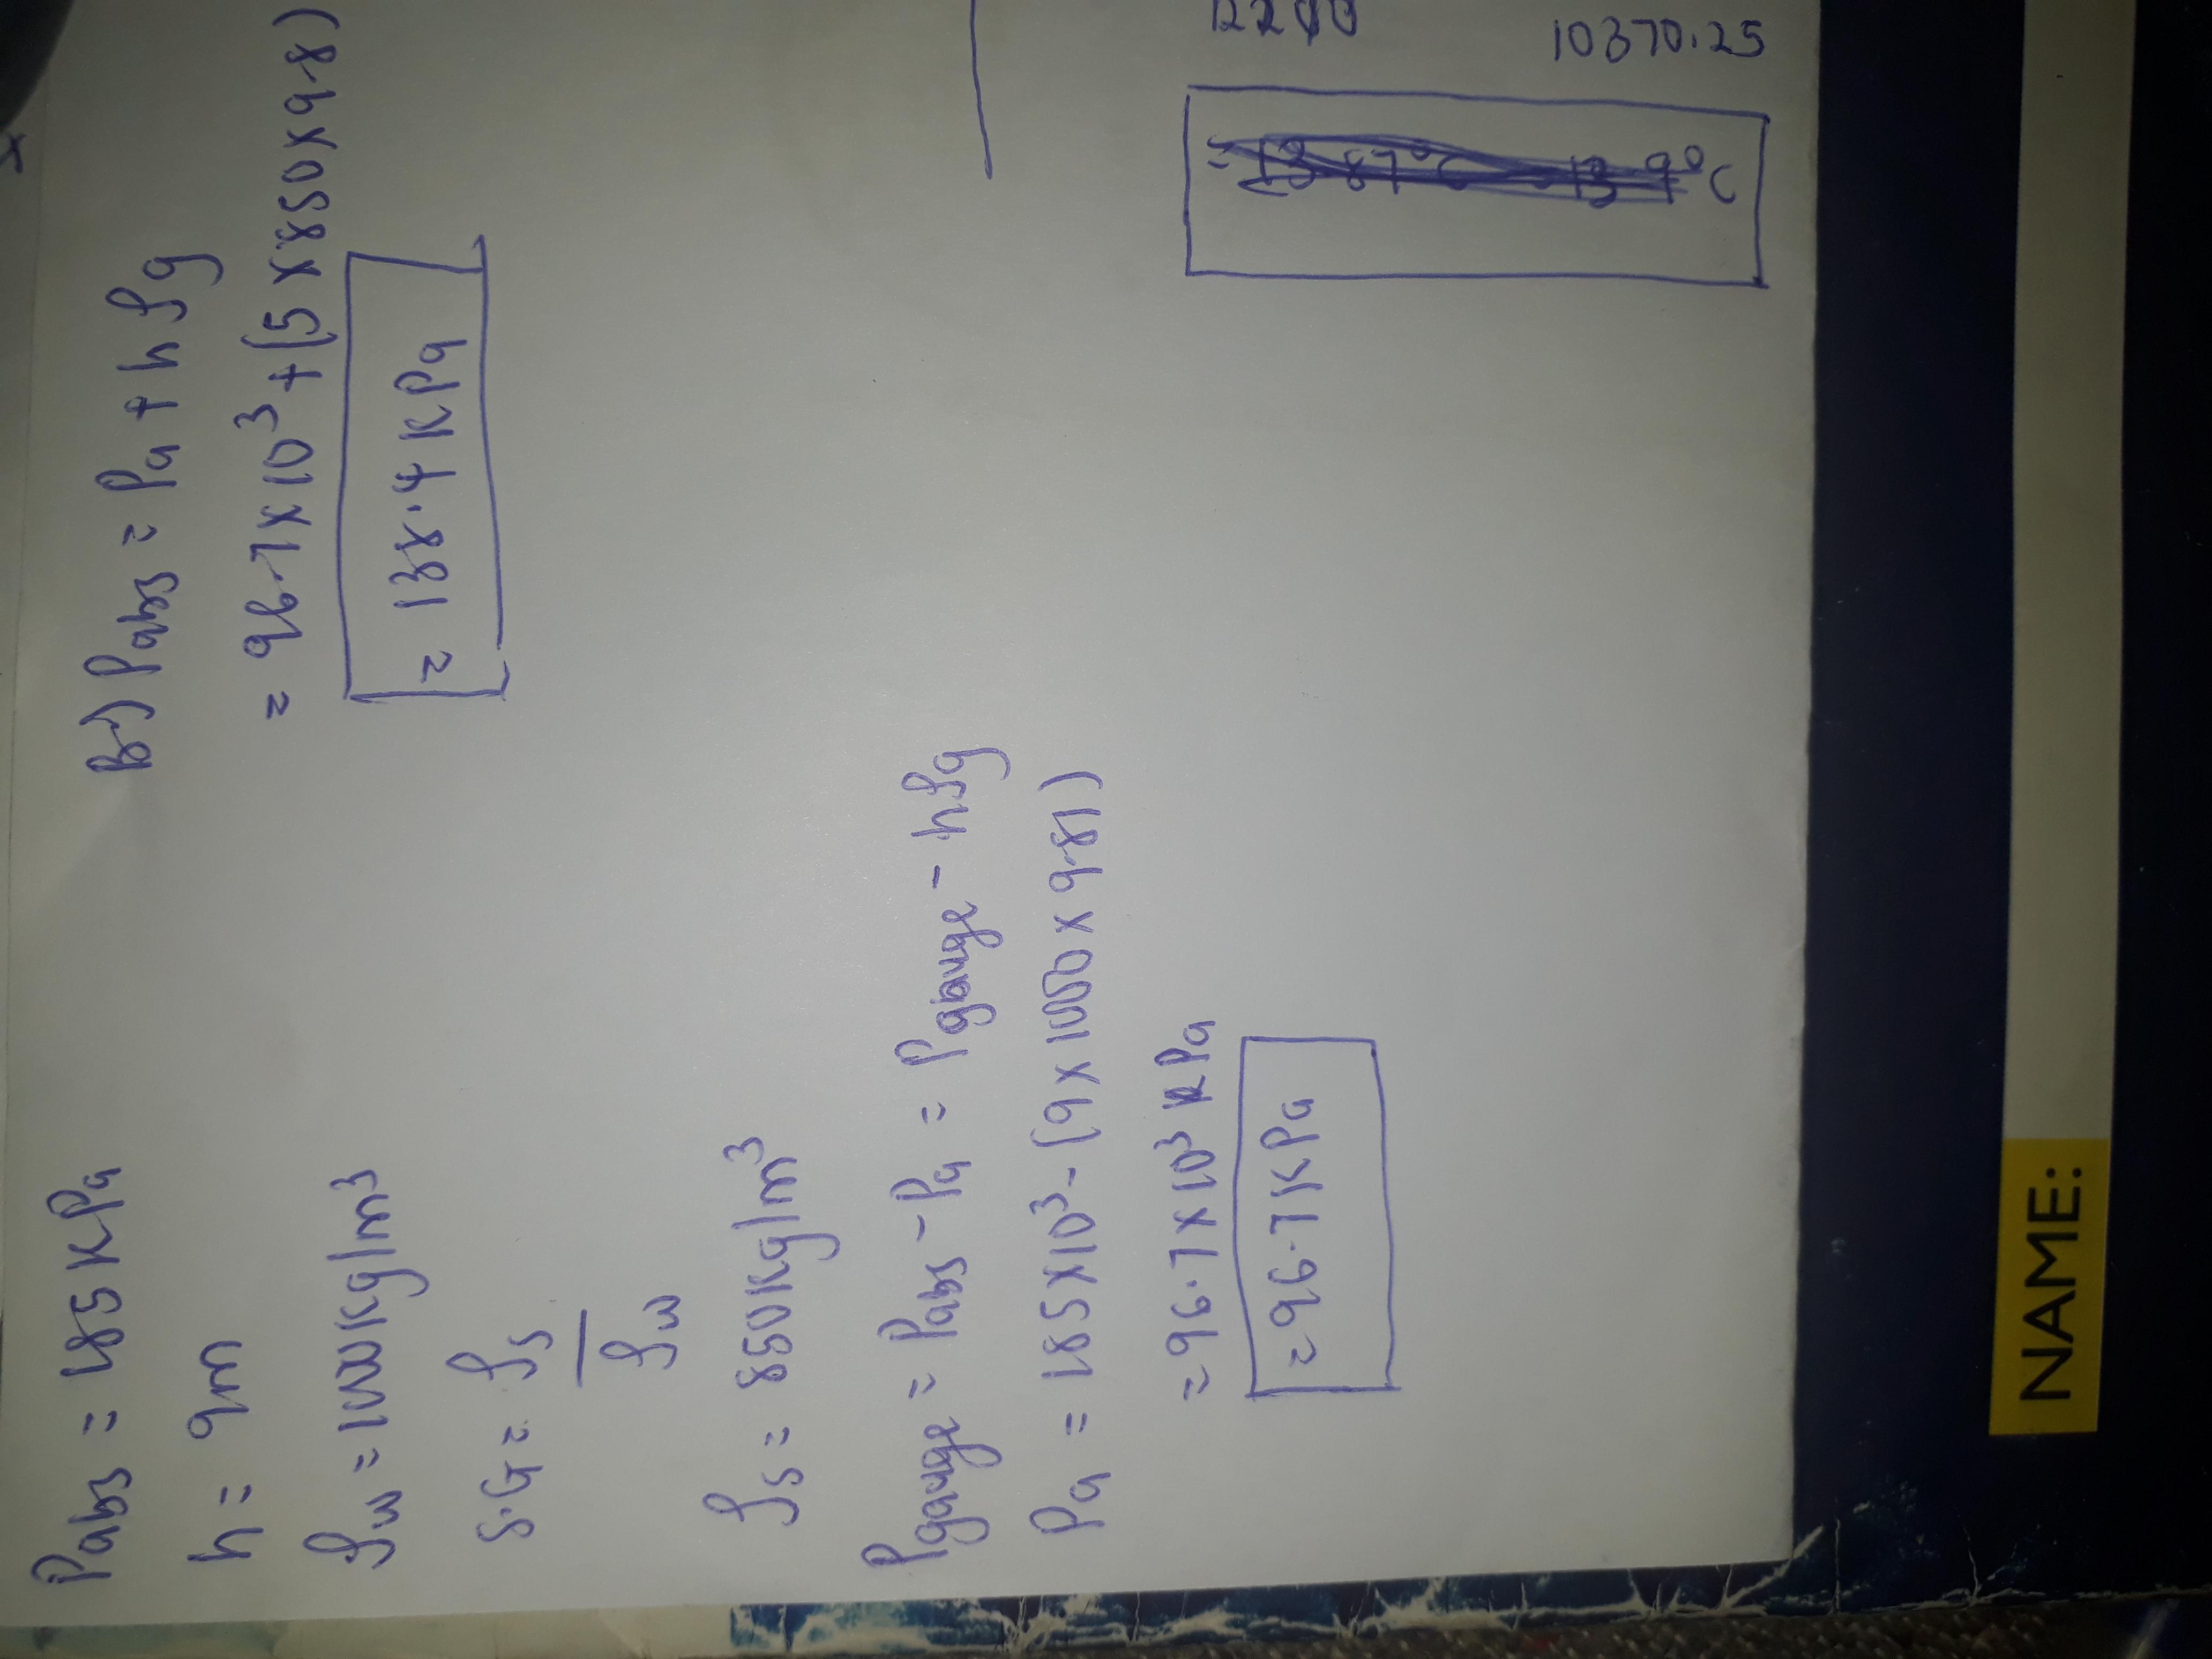 Pabs = 185 KPa
h = 9m
ρw = 1000Kg/m³
S.G = ρs
ρw
ρs = 850Kg/m³
Pgauge = Pabs - Pa = Pgauge - hρg
Pa = 185×10³ - (9×1000×9.81)
= 96.7×10³ Pa
= 96.7KPa
B) Pabs = Pa + hρg
= 96.7×10³ + (5×850×9.8)
= 138.4 KPa
10370.25
NAME: